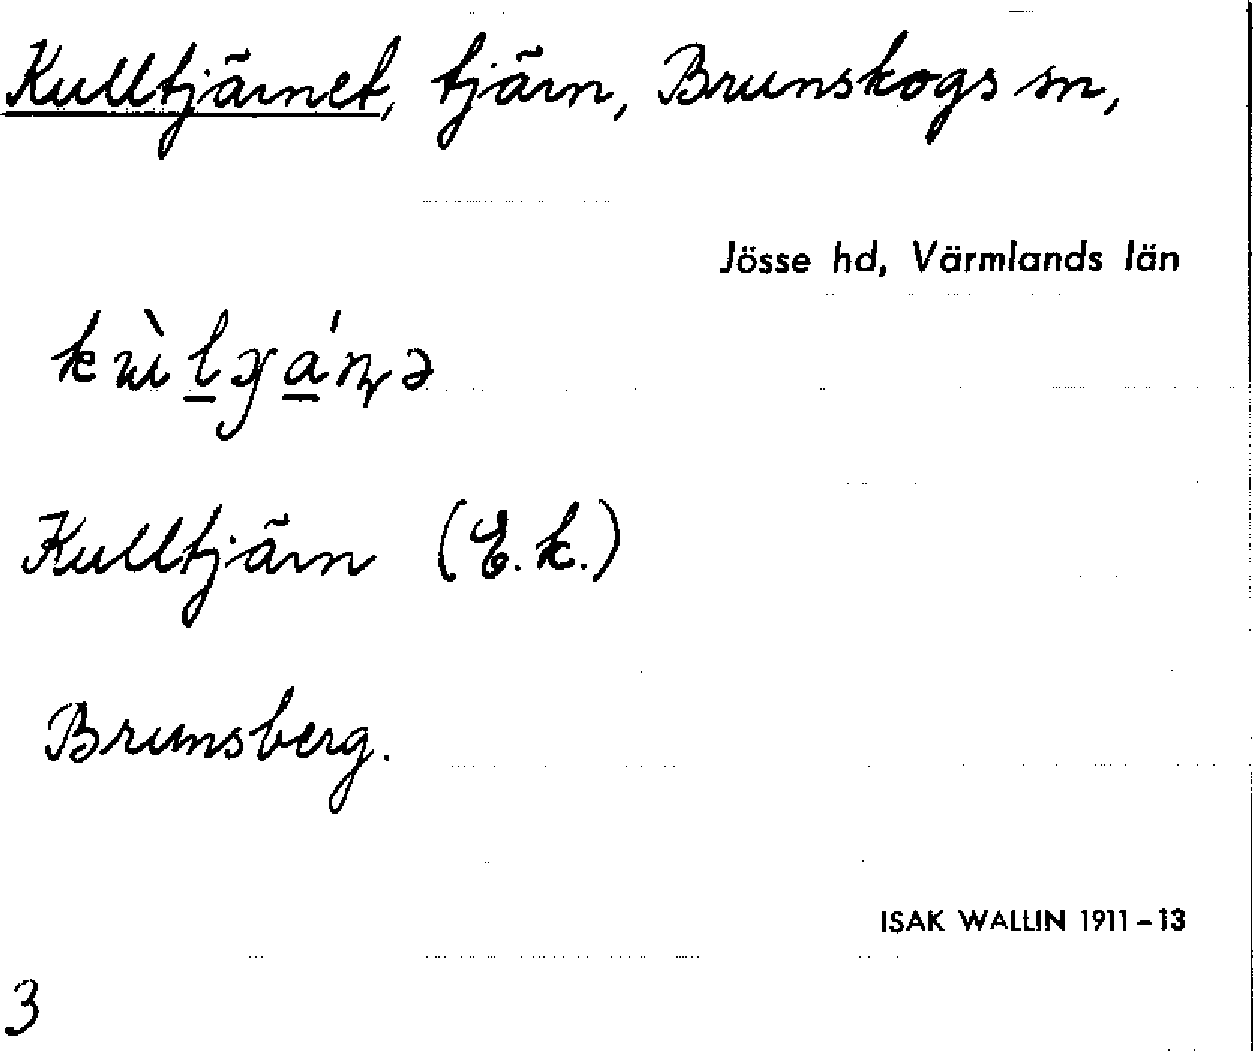 Kulltjärnet, tjärn, Brunskogs sn,
Jösse hd, Värmlands län
Kulltjärn (E.k.)
Brunsberg.
ISAK WALLIN 1911-13
3